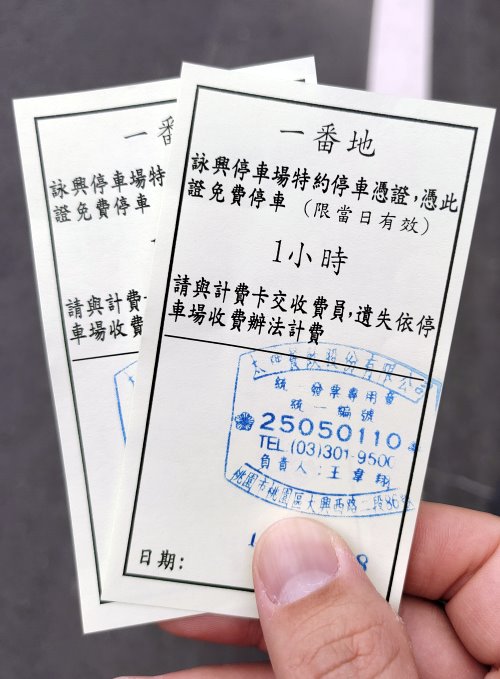 一番
詠興停車場特
證免費停車
請與計費
車場收費
一番地
詠興停車場特約停車憑證,憑此
證免費停車 (限當日有效)
1小時
請與計費卡交收費員,遺失依停
車場收費辦法計費
餐飲股份有限公司
統一發票專用章
統一編號
25050110
TEL (03)301-9500
負責人:王韋翔
桃園市桃園區大興西路二段86號
日期:
8